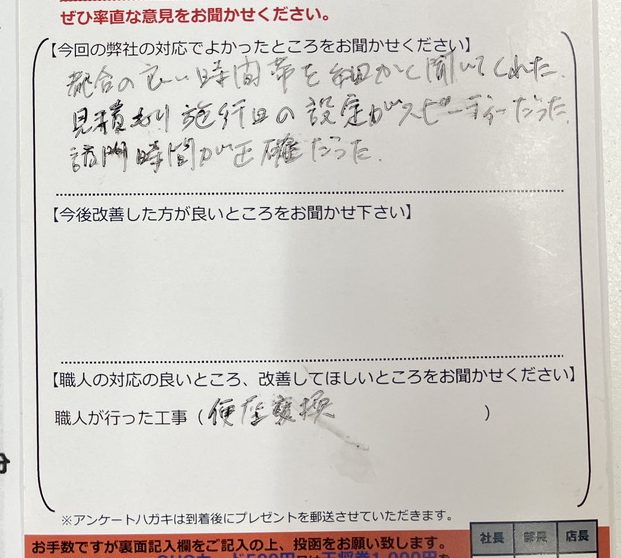 ぜひ率直な意見をお聞かせください。
【今回の弊社の対応でよかったところをお聞かせください】
都合の良い時間帯を細かく聞いてくれた.
見積もり 施行日の設定がスピーディーだった.
訪問時間が正確だった.
【今後改善した方が良いところをお聞かせ下さい】
【職人の対応の良いところ、改善してほしいところをお聞かせください】
職人が行った工事（便座交換）
※アンケートハガキは到着後にプレゼントを郵送させていただきます。
お手数ですが裏面記入欄をご記入の上、投函をお願い致します。
社長 部長 店長
分